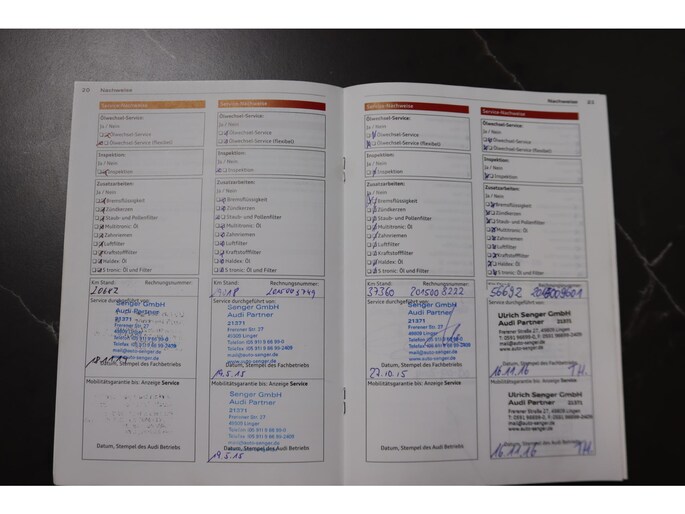 22 Nachweise
Service-Nachweise
Ölwechsel-Service:
Ja / Nein
Ölwechsel-Service
Ölwechsel-Service (flexibel)
Inspektion:
Ja / Nein
Inspektion
Zusatzarbeiten:
Ja / Nein
Bremsflüssigkeit
Zündkerzen
Staub- und Pollenfilter
Multitronic: Öl
Zahnriemen
Luftfilter
Kraftstofffilter
Haldex: Öl
S tronic: Öl und Filter
Km Stand: Rechnungsnummer:
Service durchgeführt von:
Senger GmbH
Audi Partner
21371
Frerener Str. 27
49809 Lingen
Datum, Stempel des Fachbetriebs
Mobilitätsgarantie bis: Anzeige Service
Datum, Stempel des Audi Betriebs
Service-Nachweise
Ölwechsel-Service:
Ja / Nein
Ölwechsel-Service
Ölwechsel-Service (flexibel)
Inspektion:
Ja / Nein
Inspektion
Zusatzarbeiten:
Ja / Nein
Bremsflüssigkeit
Zündkerzen
Staub- und Pollenfilter
Multitronic: Öl
Zahnriemen
Luftfilter
Kraftstofffilter
Haldex: Öl
S tronic: Öl und Filter
Km Stand: Rechnungsnummer:
Service durchgeführt von:
Senger GmbH
Audi Partner
21371
Frerener Str. 27
49809 Lingen
mail@auto-senger.de
www.auto-senger.de
Datum, Stempel des Fachbetriebs
19.5.15
Mobilitätsgarantie bis: Anzeige Service
Senger GmbH
Audi Partner
21371
Frerener Str. 27
49809 Lingen
mail@auto-senger.de
www.auto-senger.de
Datum, Stempel des Audi Betriebs
19.5.15
Nachweise 23
Service-Nachweise
Ölwechsel-Service:
Ja / Nein
Ölwechsel-Service
Ölwechsel-Service (flexibel)
Inspektion:
Ja / Nein
Inspektion
Zusatzarbeiten:
Ja / Nein
Bremsflüssigkeit
Zündkerzen
Staub- und Pollenfilter
Multitronic: Öl
Zahnriemen
Luftfilter
Kraftstofffilter
Haldex: Öl
S tronic: Öl und Filter
Km Stand: Rechnungsnummer:
37360 201500 8222
Service durchgeführt von:
Senger GmbH
Audi Partner
21371
Frerener Str. 27
49809 Lingen
mail@auto-senger.de
www.auto-senger.de
Datum, Stempel des Fachbetriebs
27.10.15
Mobilitätsgarantie bis: Anzeige Service
Datum, Stempel des Audi Betriebs
Service-Nachweise
Ölwechsel-Service:
Ja / Nein
Ölwechsel-Service
Ölwechsel-Service (flexibel)
Inspektion:
Ja / Nein
Inspektion
Zusatzarbeiten:
Ja / Nein
Bremsflüssigkeit
Zündkerzen
Staub- und Pollenfilter
Multitronic: Öl
Zahnriemen
Luftfilter
Kraftstofffilter
Haldex: Öl
S tronic: Öl und Filter
56692
Ulrich Senger GmbH
Audi Partner 21371
Frerener Straße 27, 49809 Lingen
mail@auto-senger.de
www.auto-senger.de
Datum, Stempel des Fachbetriebs
16.11.16 TH.
Mobilitätsgarantie bis: Anzeige Service
Ulrich Senger GmbH
Audi Partner 21371
Frerener Straße 27, 49809 Lingen
mail@auto-senger.de
www.auto-senger.de
Datum, Stempel des Audi Betriebs
16.11.16 TH.